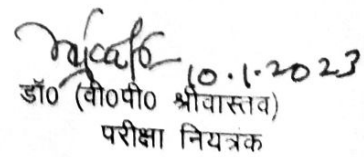 10.1.2023
डॉ० (वी०पी० श्रीवास्तव)
परीक्षा नियत्रक